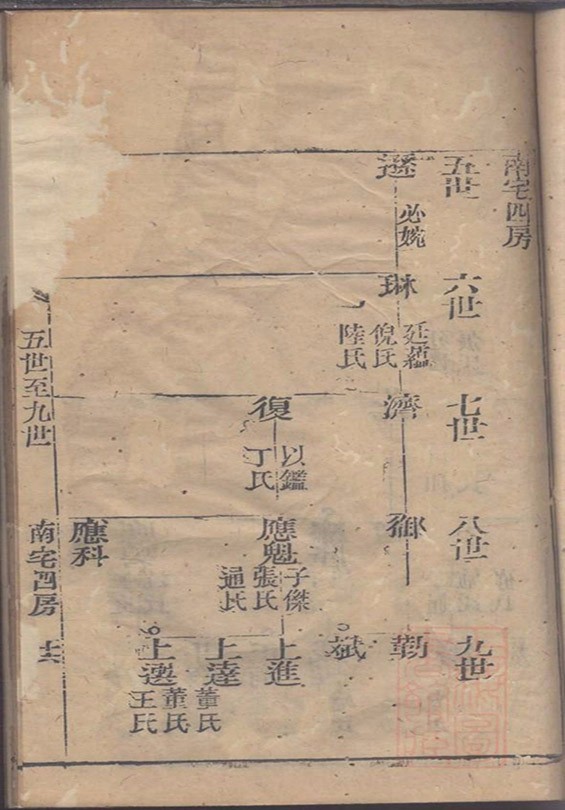 南宅四房
五世
遜
必婉
六世
琳
廷蘊
倪氏
陸氏
七世
濟
復
以鑑
丁氏
八世
鄉
應魁
子傑
張氏
通氏
應科
九世
勤
斌
上進
上達
董氏
上選
董氏
王氏
五世至九世
南宅四房